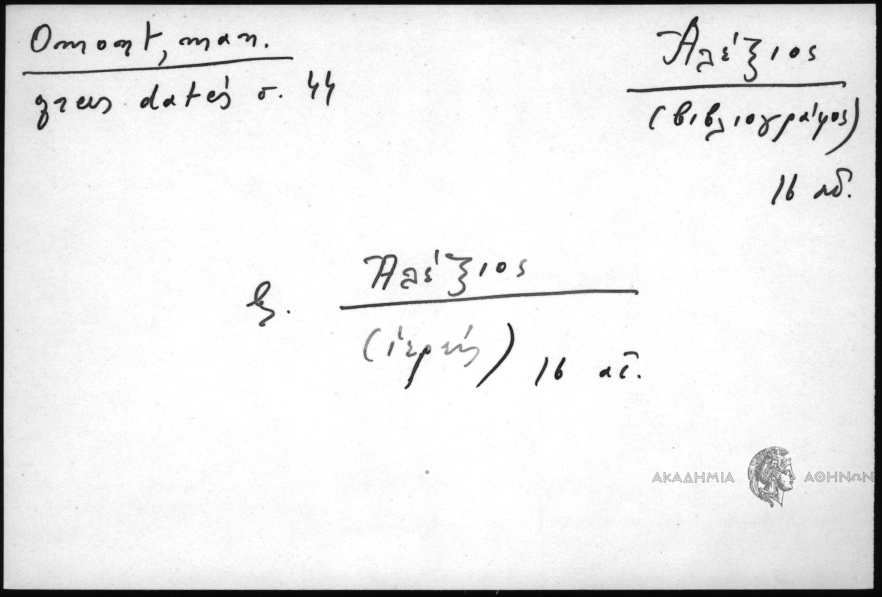 Omont, man.
grecs datés σ. 44
Ἀλέξιος
(βιβλιογράφος)
16 αἰ.
β. Ἀλέξιος
(ἱερεύς) 16 αἰ.
ΑΚΑΔΗΜΙΑ ΑΘΗΝΩΝ